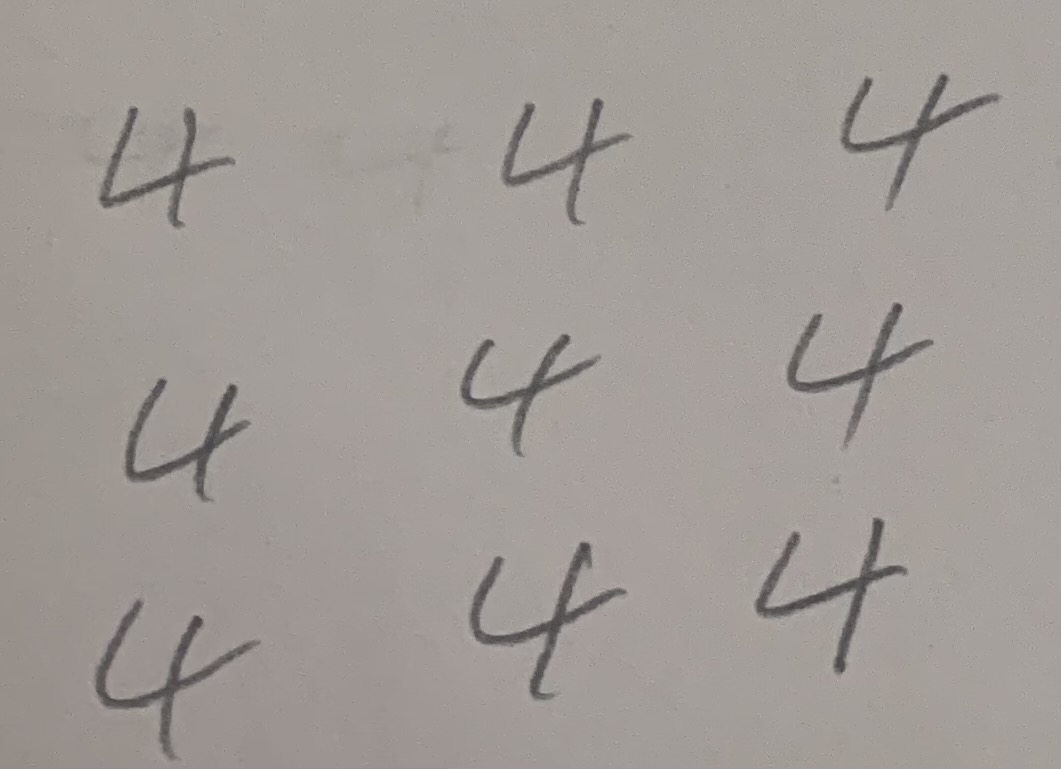 4 4 4
4 4 4
4 4 4